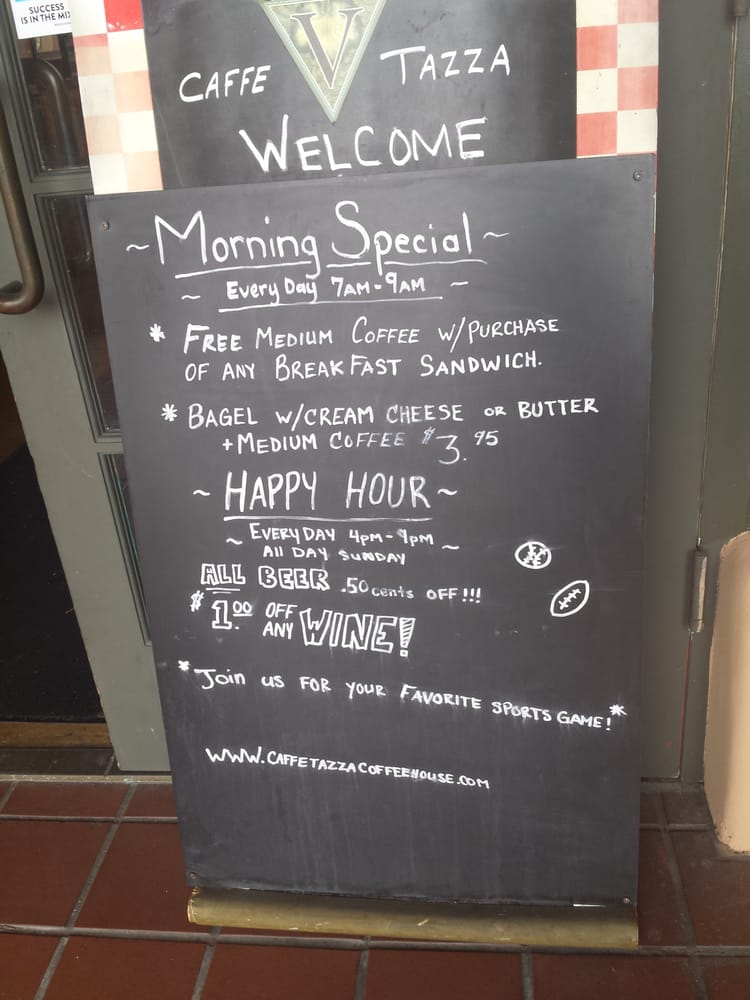 SUCCESS
IS IN THE MIX
V
CAFFE TAZZA
WELCOME
~ Morning Special ~
~ Every Day 7AM - 9AM ~
* FREE MEDIUM COFFEE W/PURCHASE
OF ANY BREAKFAST SANDWICH.
* BAGEL W/CREAM CHEESE OR BUTTER
+MEDIUM COFFEE $3.95
~ HAPPY HOUR ~
~ EVERYDAY 4PM - 9PM ~
All DAY SUNDAY
ALL BEER .50 cents OFF!!!
$1.00 OFF
ANY WINE!
*Join us FOR YOUR FAVORITE SPORTS GAME!*
WWW.CAFFETAZZACOFFEEHOUSE.COM